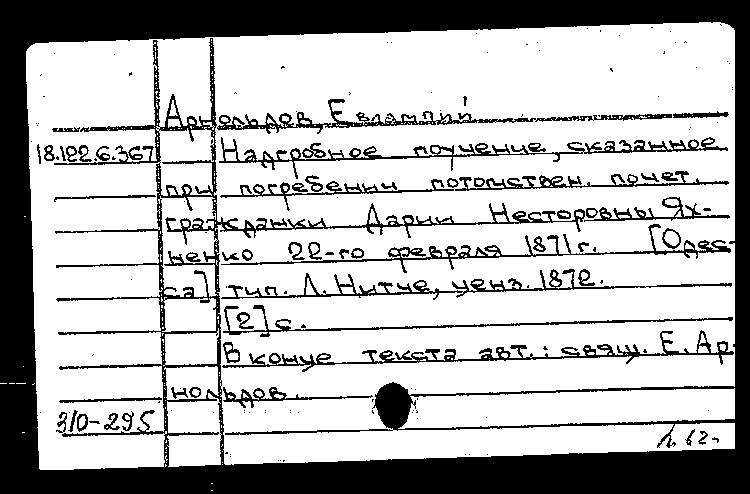 Арнольдов, Евлампий
18.122.6.367 Надгробное поучение, сказанное
при погребении потомствен. почет.
гражданки Дарии Несторовны Ях-
ненко 22-го февраля 1871 г. [Одес-
са] тип. Л. Нитче, ценз. 1872.
[2] с.
В конце текста авт.: свящ. Е. Ар-
нольдов.
310-295